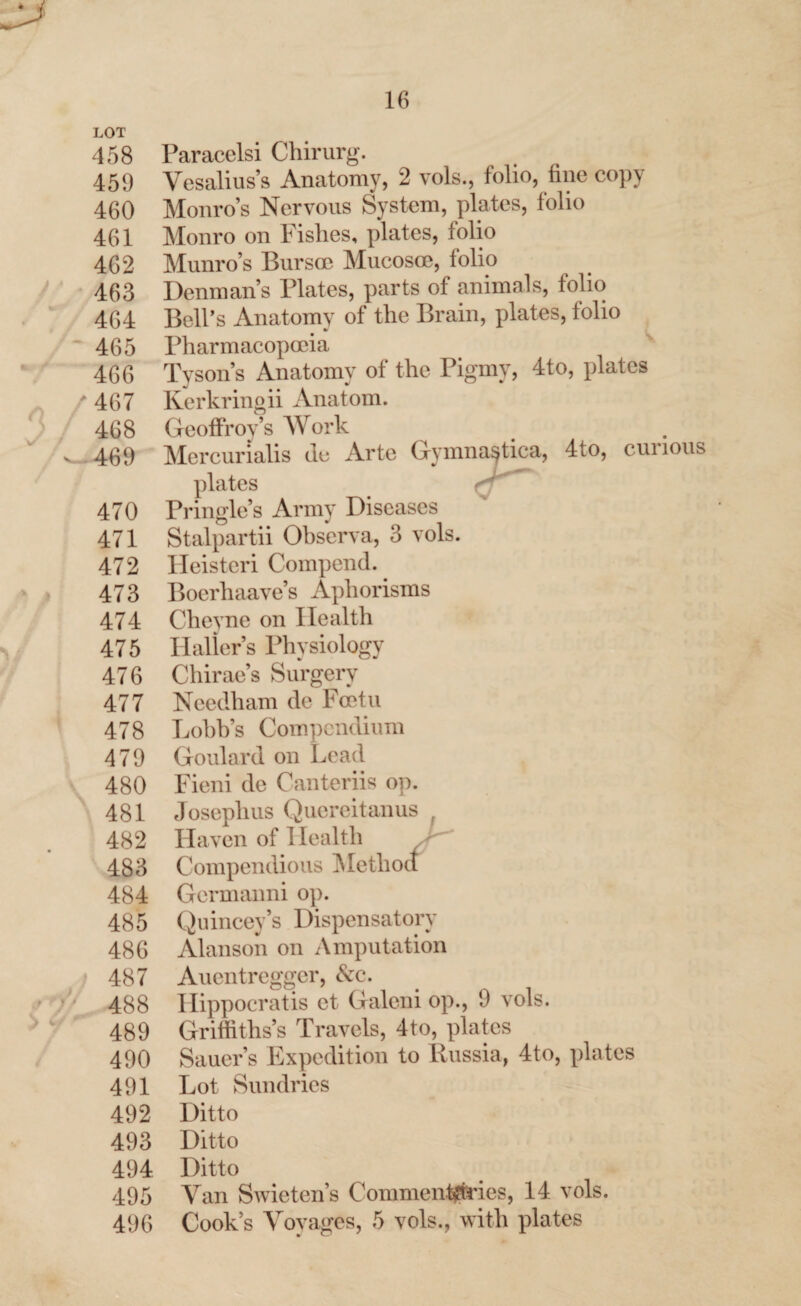 16
LOT
458 Paracelsi Chirurg.
459 Vesalius's Anatomy, 2 vols., folio, fine copy
460 Monro's Nervous System, plates, folio
461 Monro on Fishes, plates, folio
462 Munro's Bursœ Mucosœ, folio
463 Denman's Plates, parts of animals, folio
464 Bell's Anatomy of the Brain, plates, folio
465 Pharmacopœia
466 Tyson's Anatomy of the Pigmy, 4to, plates
467 Kerkringii Anatom.
468 Geoffroy's Work
469 Mercurialis de Arte Gymnastica, 4to, curious
plates
470 Pringle's Army Diseases
471 Stalpartii Observa, 3 vols.
472 Heisteri Compend.
473 Boerhaave's Aphorisms
474 Cheyne on Health
475 Haller's Physiology
476 Chirae's Surgery
477 Needham de Fœtu
478 Lobb's Compendium
479 Goulard on Lead
480 Fieni de Canteriis op.
481 Josephus Quereitanus
482 Haven of Health
483 Compendious Method
484 Germanni op.
485 Quincey's Dispensatory
486 Alanson on Amputation
487 Auentregger, &c.
488 Hippocratis et Galeni op., 9 vols.
489 Griffiths's Travels, 4to, plates
490 Sauer's Expedition to Russia, 4to, plates
491 Lot Sundries
492 Ditto
493 Ditto
494 Ditto
495 Van Swieten's Commentaries, 14 vols.
496 Cook's Voyages, 5 vols., with plates